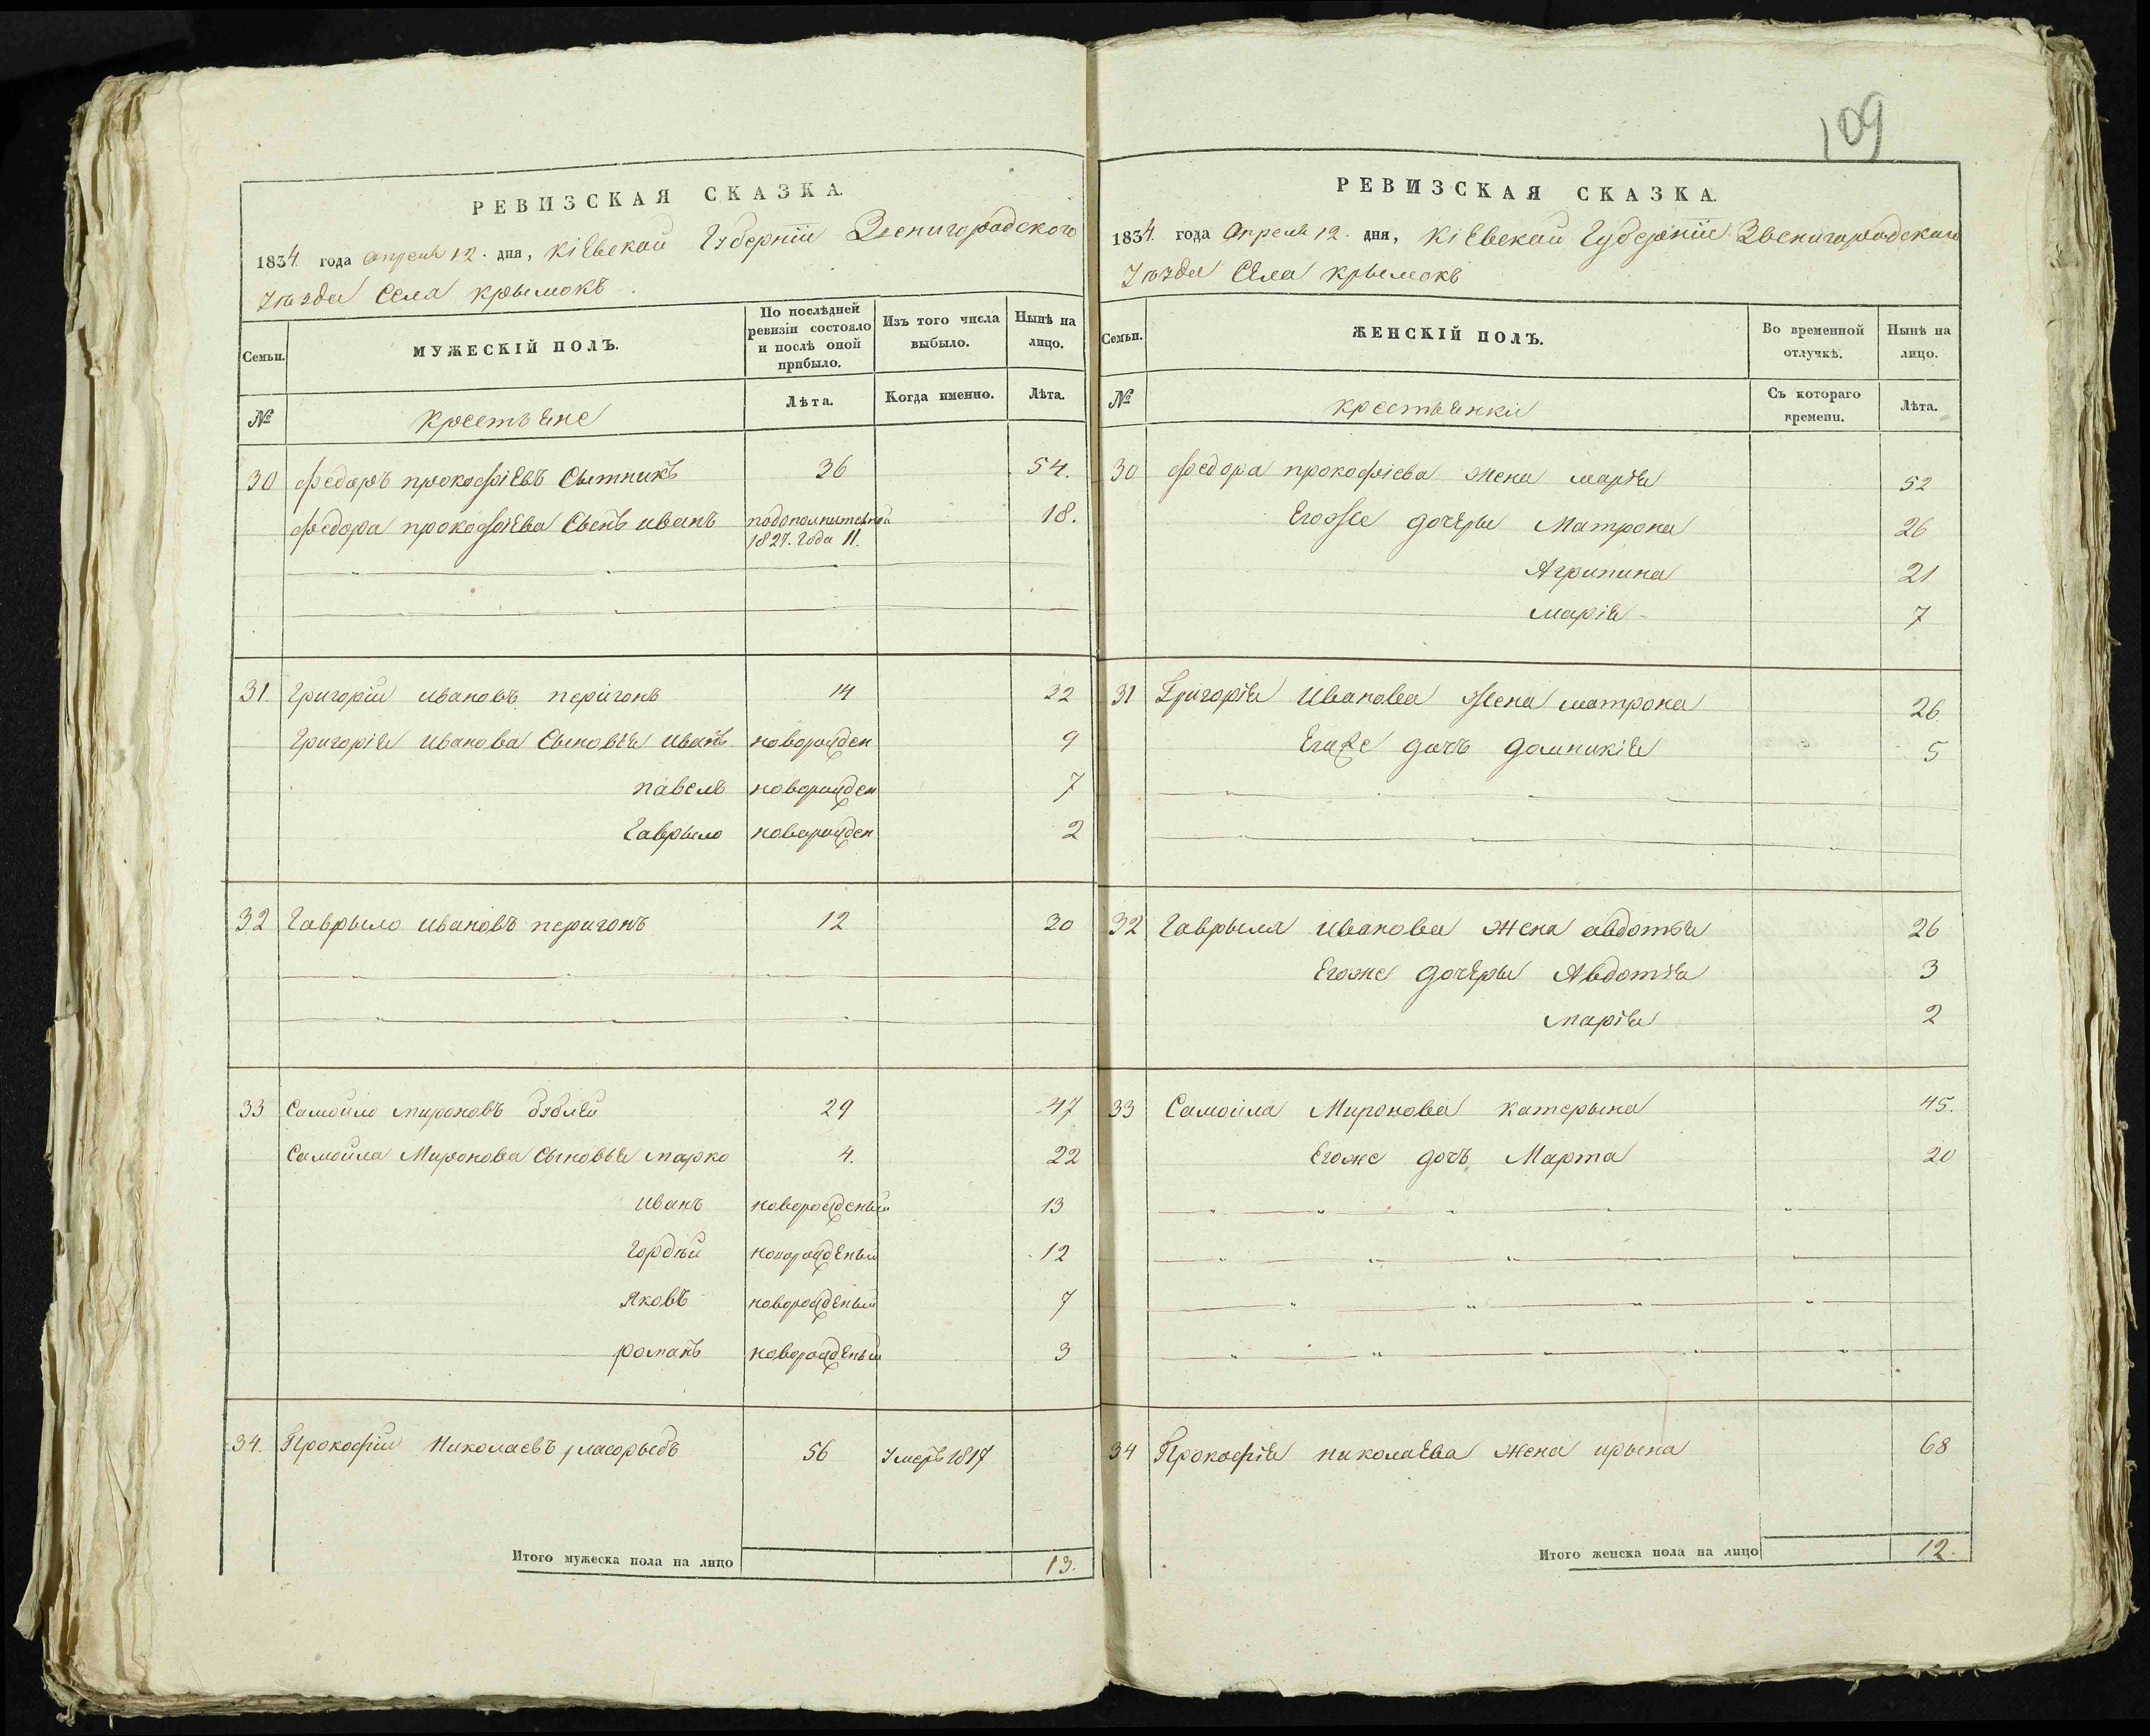 109
РЕВИЗСКАЯ СКАЗКА.
1834 года апреля 12. дня, кіевской Губерніи Звенигородского
Уѣзда Села крымокъ
Семьи. МУЖЕСКІЙ ПОЛЪ. По послѣдней ревизіи состояло и послѣ оной прибыло. Изъ того числа выбыло. Нынѣ на лицо.
№ крестьяне Лѣта. Когда именно. Лѣта.
30 Федоръ прокофіевъ Сытникъ 36 54.
Федора прокофіева Сынъ иванъ подополнительной 1827. Года 11. 18.
31. Григорій ивановъ перігонъ 14 32
Григорія иванова Сыновья иванъ новорожден 9
павелъ новорожден 7
Гаврыло новорожден 2
32 Гаврыло ивановъ перигонъ 12 30
33 Самойло мироновъ 29 47
Самойла Миронова Сыновья марко 4. 22
иванъ новорожденый 13
Гордѣй новорожденый 12
Яковъ новорожденый 7
романъ новорожденый 3
34. Прокофій Николаевъ 56 Умеръ 1817
Итого мужеска пола на лицо 13.
РЕВИЗСКАЯ СКАЗКА.
1834 года Апреля 12. дня, кіевской Губерніи Звенигородскаго
Уѣзда Села крымокъ
Семьи. ЖЕНСКІЙ ПОЛЪ. Во временной отлучкѣ. Нынѣ на лицо.
№ крестьянки Съ котораго времени. Лѣта.
30 Федора прокофіева жена марія 52
Егоже дочеры Матрона 26
Агрипина 21
марія 7
31 Григорія Иванова жена матрона 26
Егоже дочъ домникія 5
32 Гаврыла иванова жена авдотья 26
Егоже дочеры Авдотія 3
марія 2
33 Самойла Миронова катерына 45.
Егоже дочъ Марта 20
34 Прокофія николаева жена ирына 68
Итого женска пола на лицо 12.